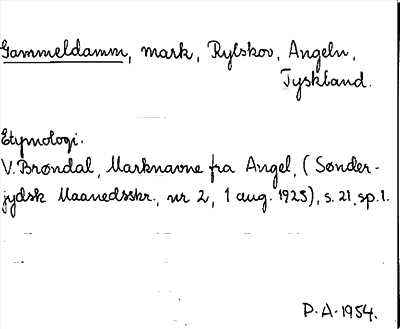 Gammeldamm, mark, Rylskov, Angeln,
Tyskland.
Etymologi.
V. Brøndal, Marknavne fra Angel, (Sønder-
jydsk Maanedsskr., nr 2, 1 aug. 1925), s. 21, sp. 1.
P. A. 1954.